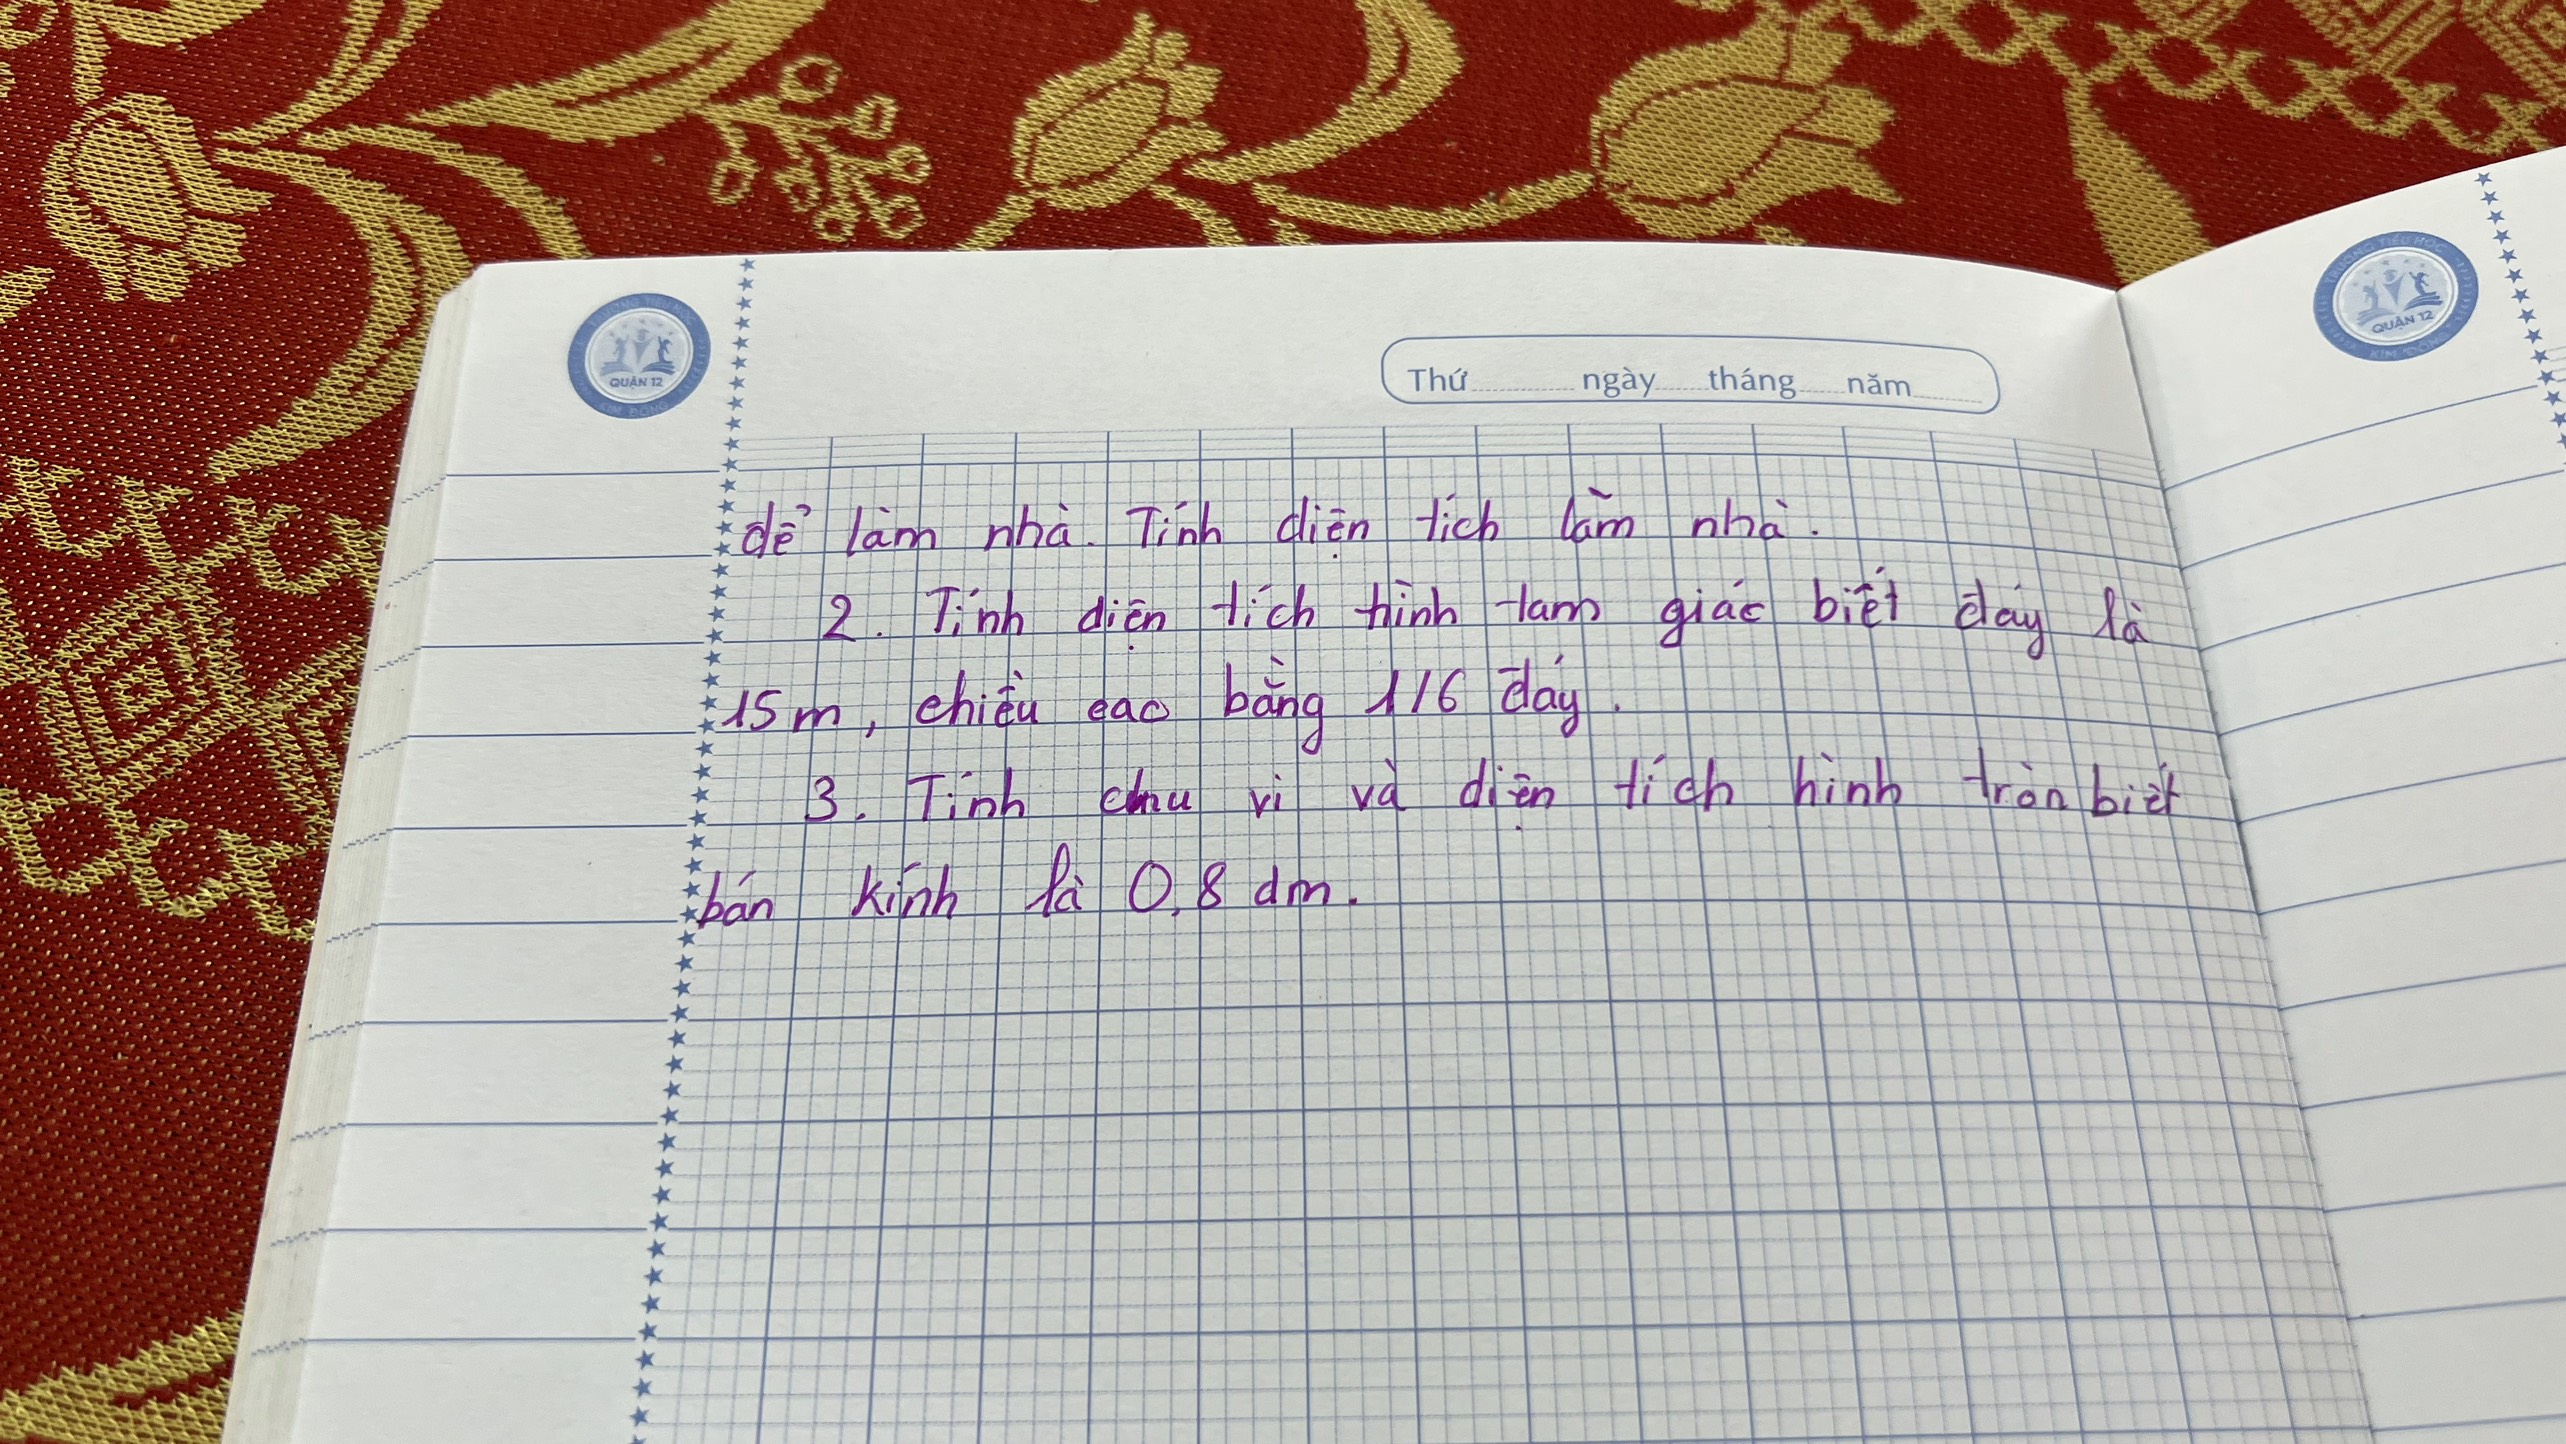 QUẬN 12
KIM ĐỒNG
TRƯỜNG TIỂU HỌC
QUẬN 12
KIM ĐỒNG
Thứ ngày tháng năm
để làm nhà. Tính diện tích làm nhà.
2. Tính diện tích hình tam giác biết đáy là
15m, chiều cao bằng 1/6 đáy.
3. Tính chu vi và diện tích hình tròn biết
bán kính là 0,8 dm.